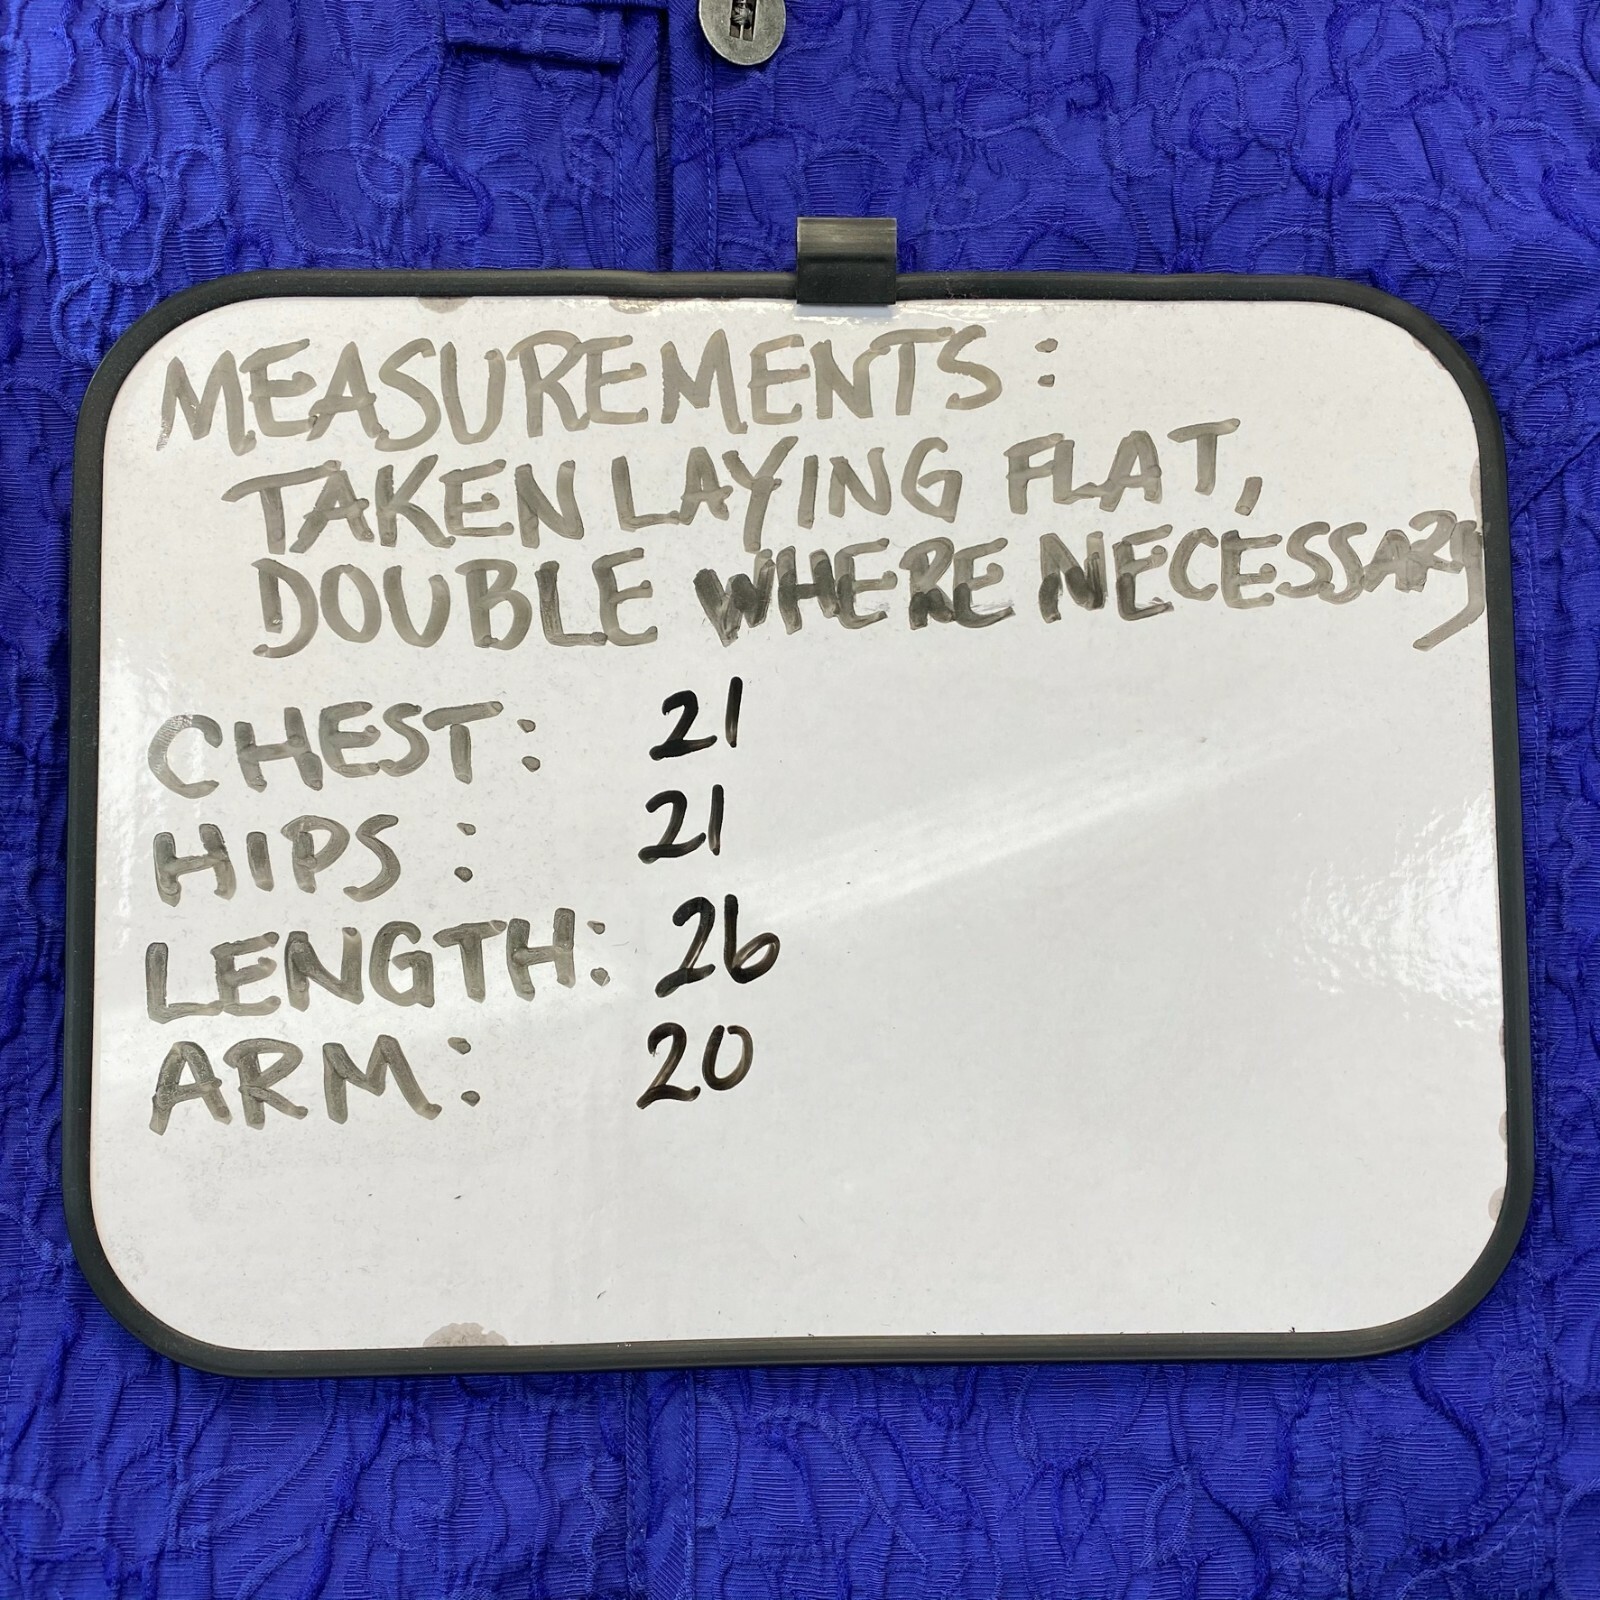 MEASUREMENTS:
TAKEN LAYING FLAT,
DOUBLE WHERE NECESSARY
CHEST: 21
HIPS: 21
LENGTH: 26
ARM: 20